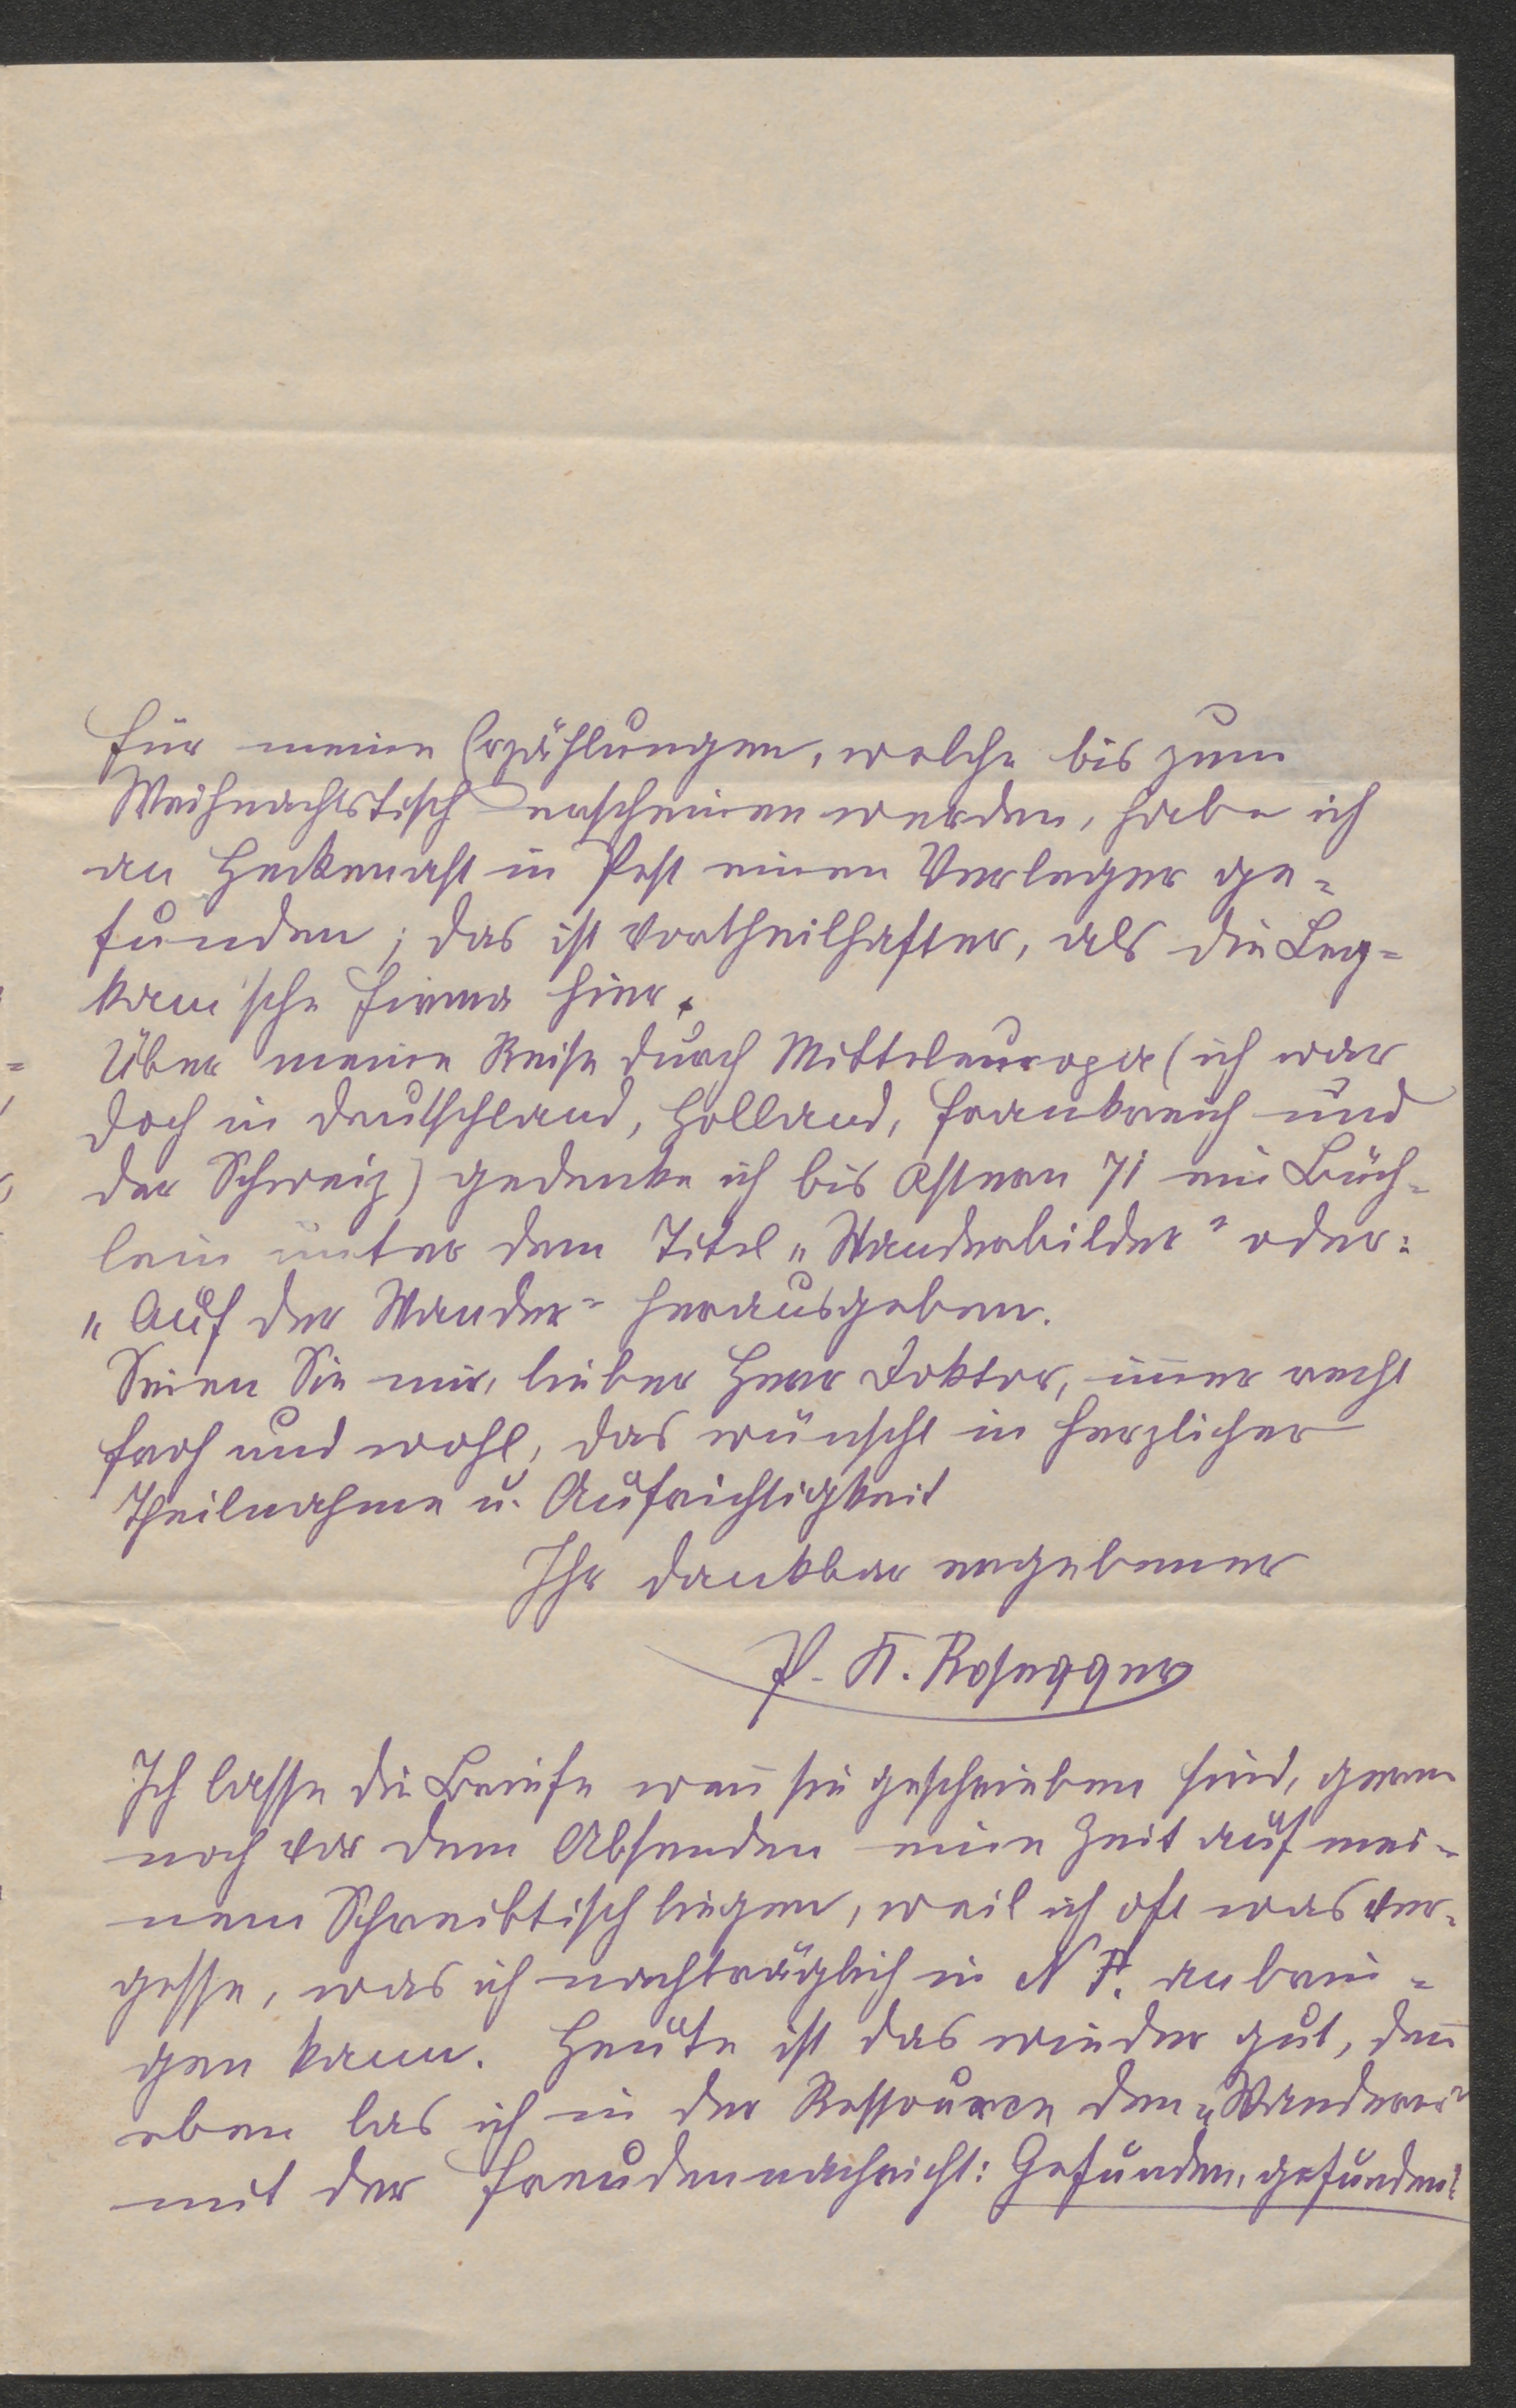 Für meine Erzählungen, welche bis zum
Weihnachtstisch erscheinen werden, habe ich
an Heckenast in Pest einen Verleger ge-
funden; das ist vortheilhafter, als die Ley-
kam'sche Firma hier.
Über meine Reise durch Mitteleuropa (ich war
doch in Deutschland, Holland, Frankreich und
der Schweiz) gedenke ich bis Ostern 71 ein Büch-
lein unter dem Titel „Wanderbilder" oder:
„Auf der Wander" herausgeben.
Seien Sie mir, lieber Herr Doktor, im̅er recht
froh und wohl, das wünscht in herzlicher
Theilnahme u. Aufrichtigkeit
Ihr dankbar ergebener
P. K. Rosegger
Ich lasse die Briefe wen̅ sie geschrieben sind, gerne
noch vor dem Absenden eine Zeit auf mei-
nem Schreibtisch liegen, weil ich oft was ver-
gesse, was ich nachträglich in NB. anbrin-
gen kann. Heute ist das wieder gut, den̅
eben las ich in der Ressource den „Wanderer"
mit der Freudennachricht: Gefunden, gefunden!